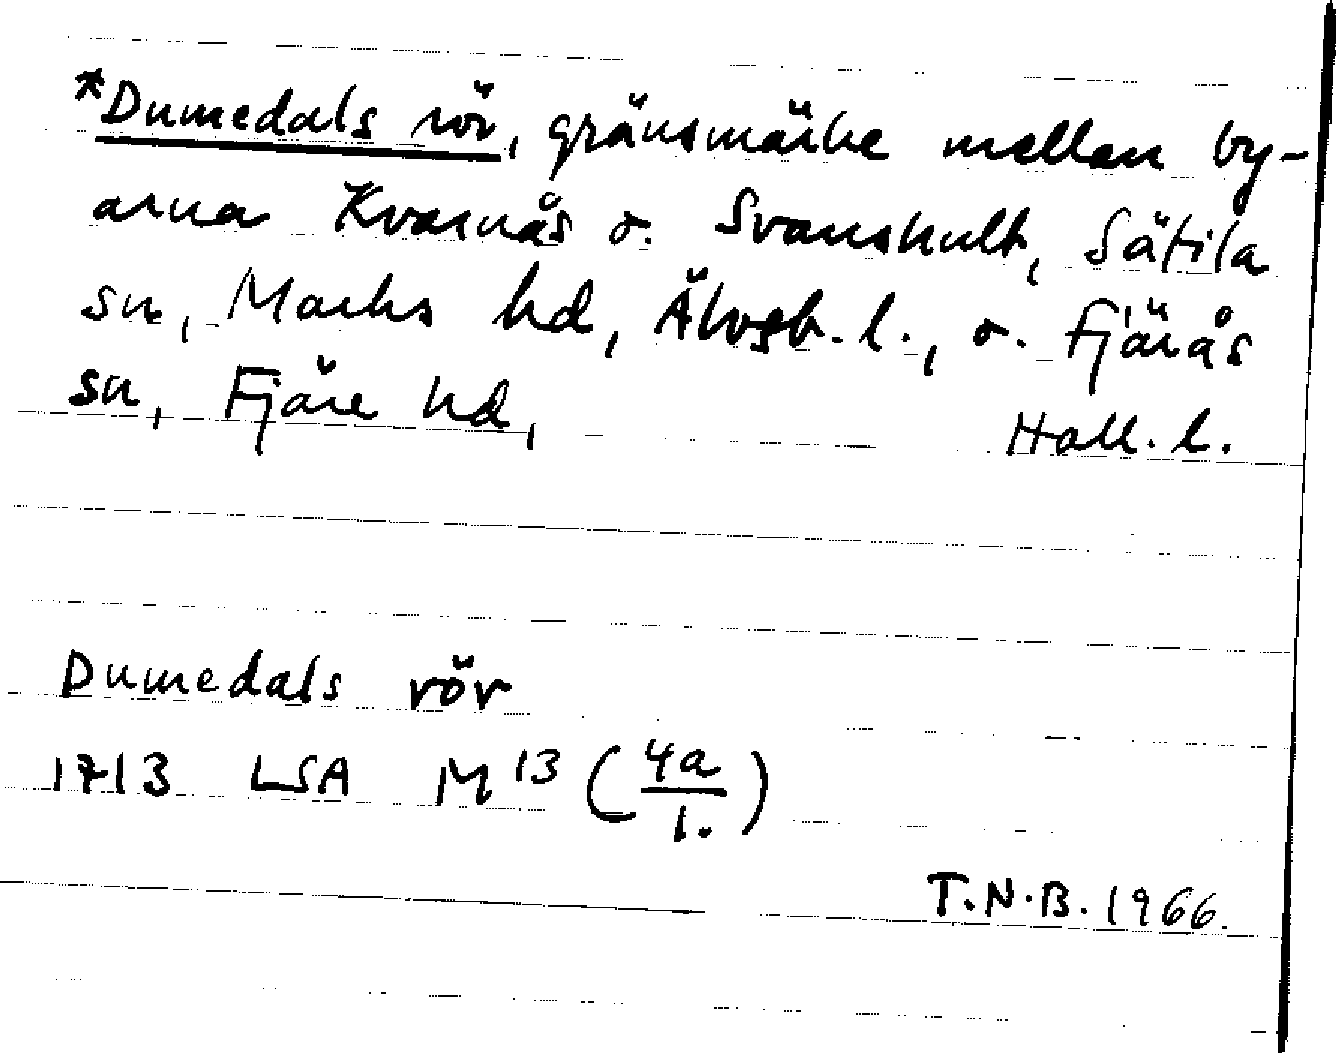 *Dumedals rör, gränsmärke mellan by-
arna Kvarnås o. Svanshult, Sätila
sn, Marks hd, Älvsb. l., o. Fjärås
sn, Fjäre hd, Hall. l.
Dumedals rör
1713 LSA M 13 (4a/1.)
T.N.B. 1966.